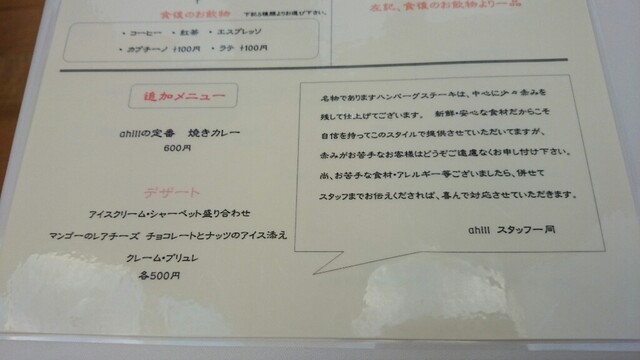 食後のお飲物 下記5種類よりお選び下さい。
・コーヒー ・紅茶 ・エスプレッソ
・カプチーノ +100円 ・ラテ +100円
左記、食後のお飲物より一品
追加メニュー
ahillの定番 焼きカレー
600円
デザート
アイスクリーム・シャーベット盛り合わせ
マンゴーのレアチーズ チョコレートとナッツのアイス添え
クレーム・ブリュレ
各500円
名物でありますハンバーグステーキは、中心に少々赤みを
残して仕上げてございます。 新鮮・安心な食材だからこそ
自信を持ってこのスタイルで提供させていただいてますが、
赤みがお苦手なお客様はどうぞご遠慮なくお申し付け下さい。
尚、お苦手な食材・アレルギー等ございましたら、併せて
スタッフまでお伝えくだされば、喜んで対応させていただきます。
ahill スタッフ一同